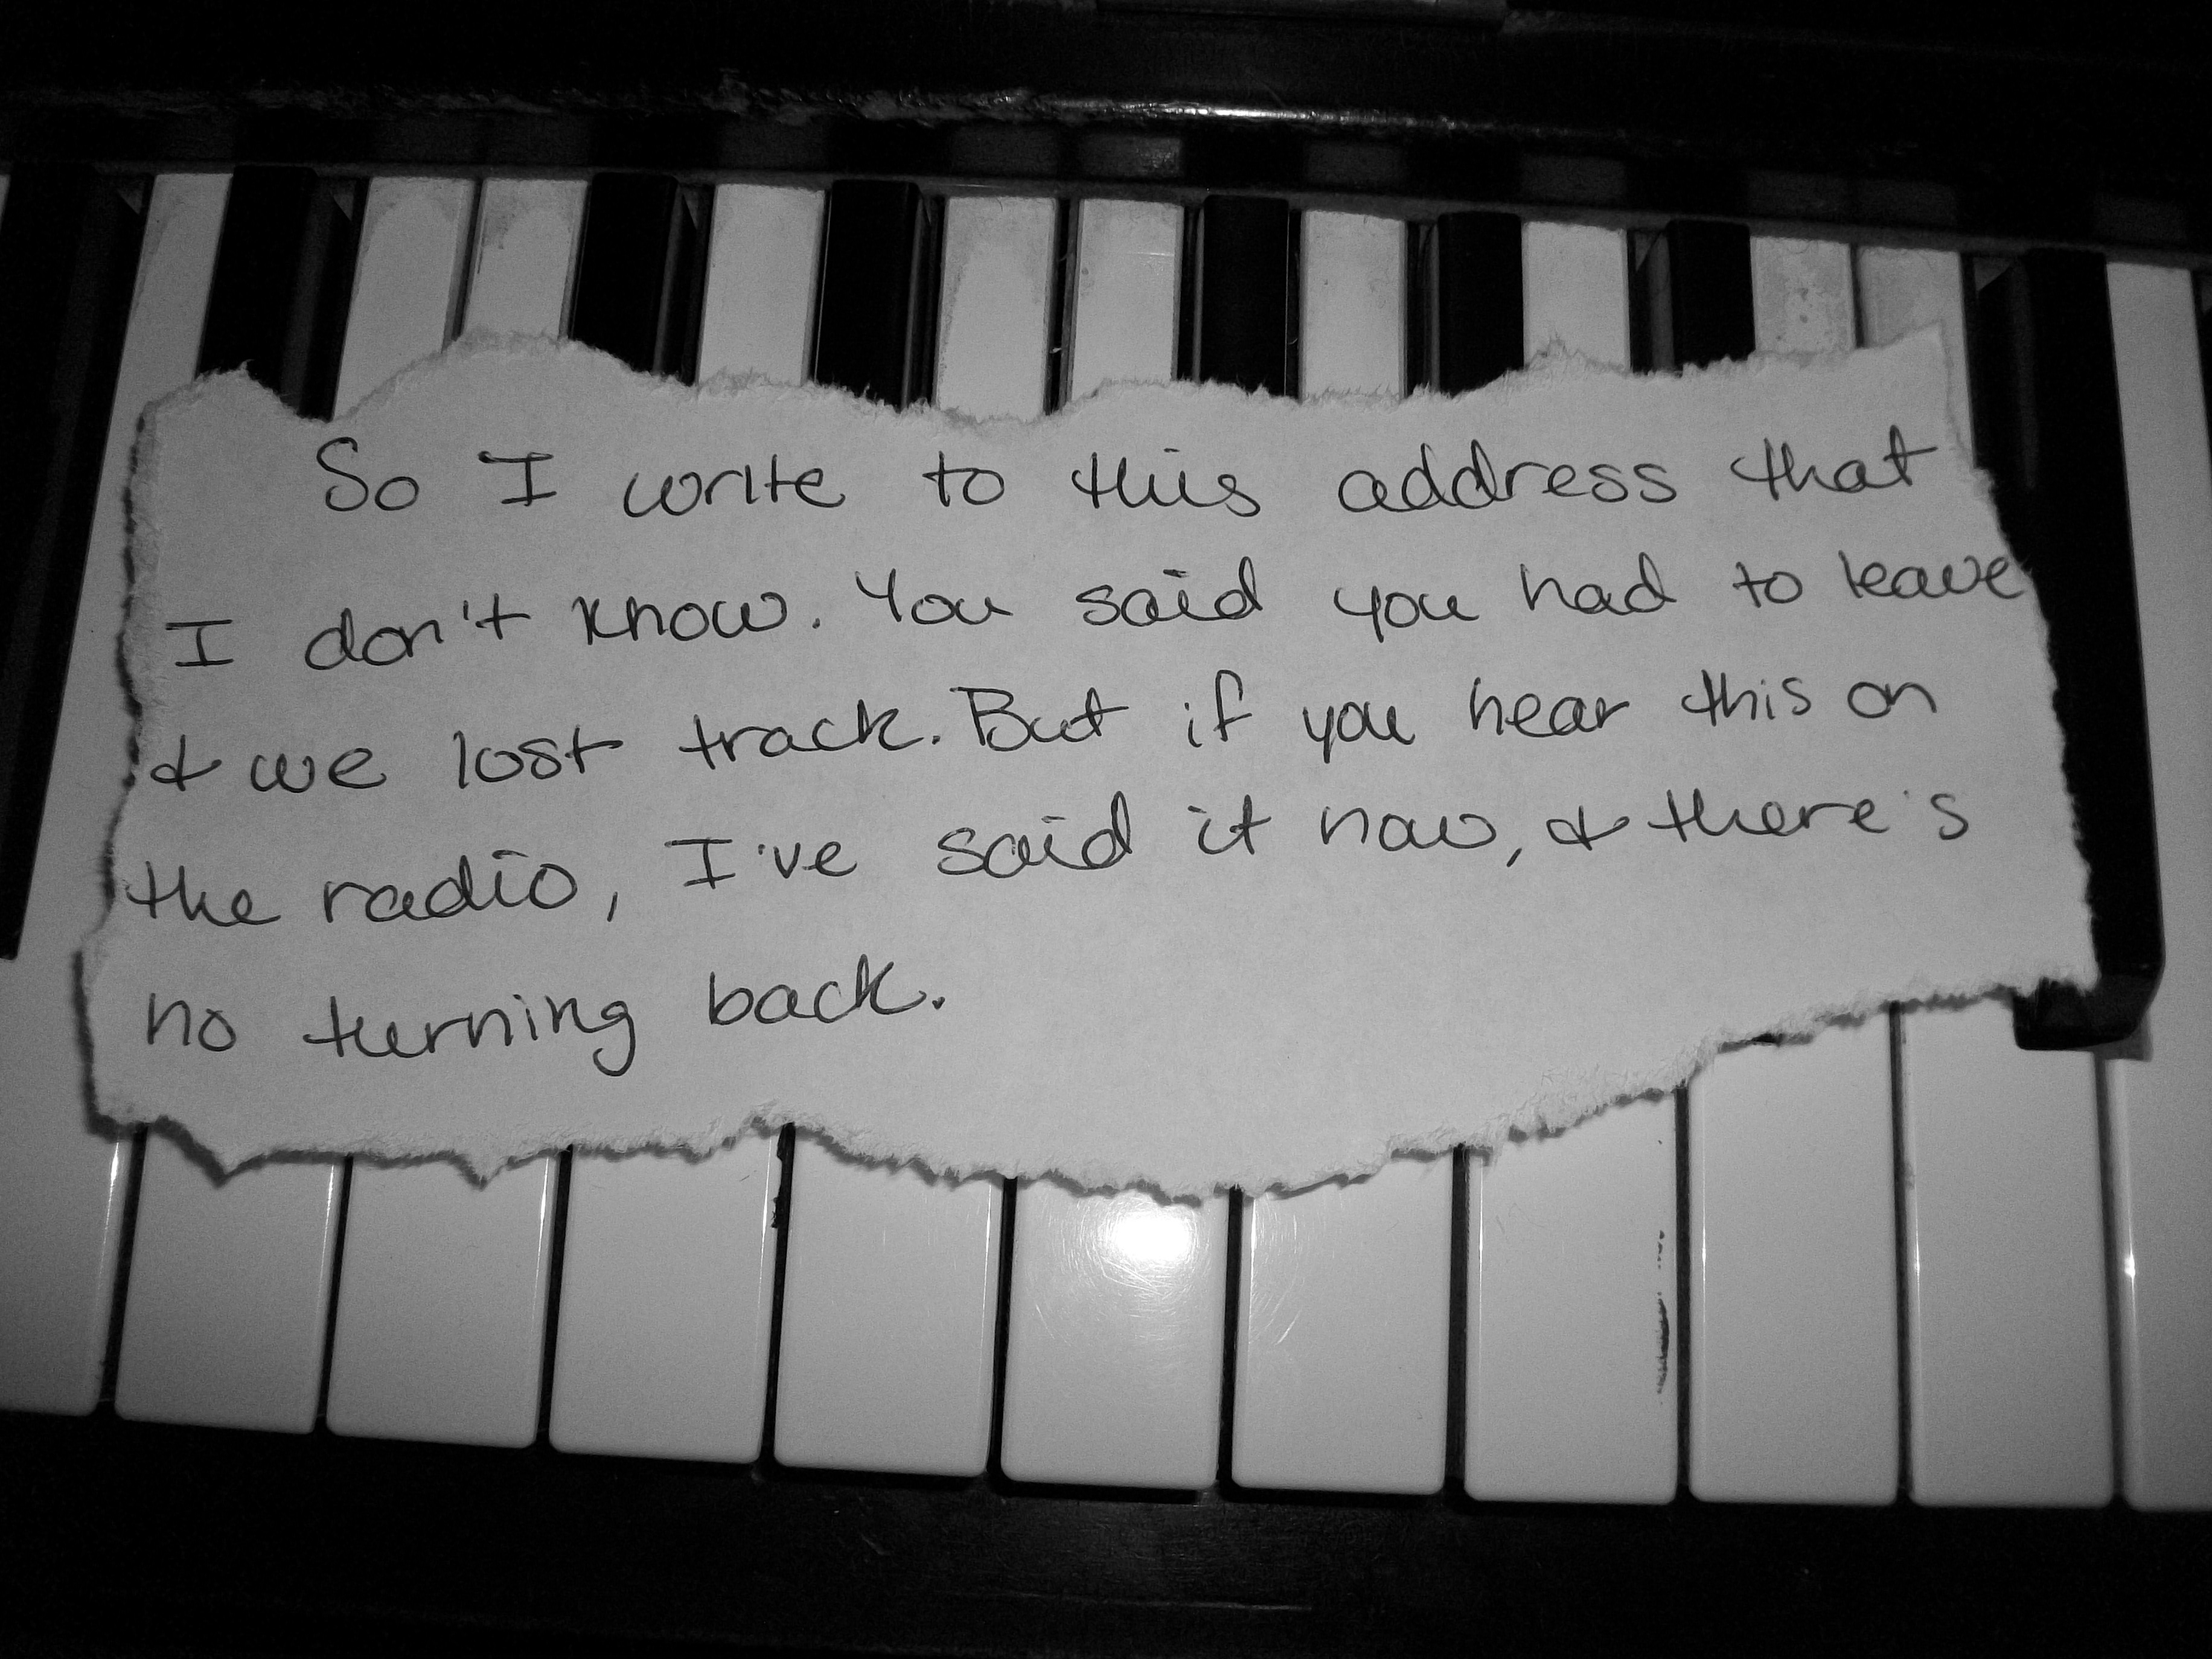 So I write to this address that
I don't know. You said you had to leave
& we lost track. But if you hear this on
the radio, I've said it now, & there's
no turning back.